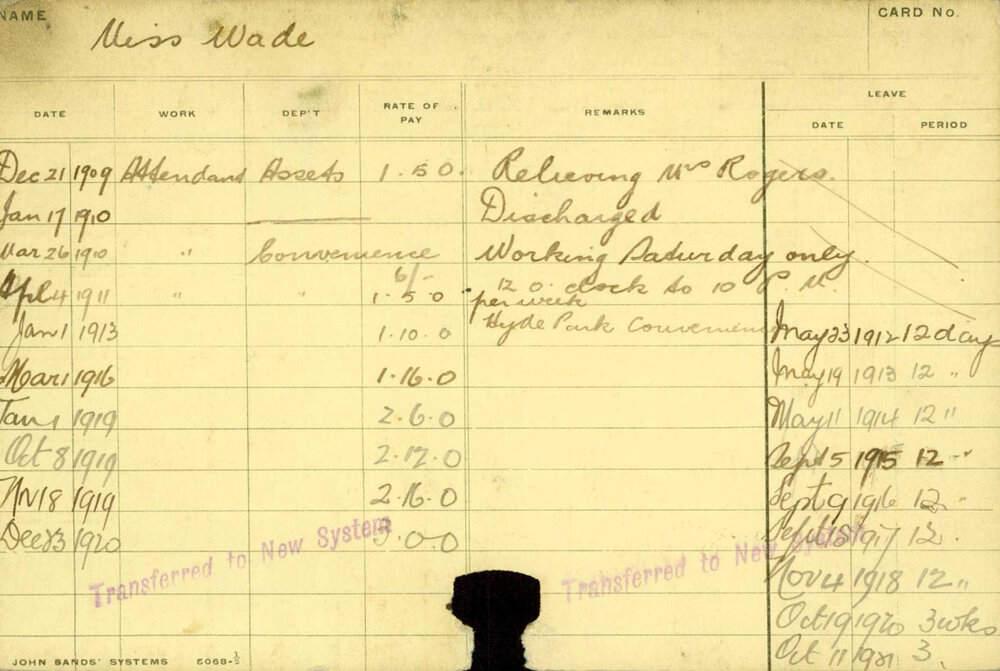 NAME Miss Wade CARD No.
LEAVE
DATE WORK DEP'T RATE OF PAY REMARKS DATE PERIOD
Dec 21 1909 Attendant Assets 1.5.0. Relieving Mrs Rogers.
Jan 17 1910 Discharged
Mar 26 1910 " Convenience 6/- Working Saturday only.
Apl 4 1911 " " 1.5.0 12 o. clock to 10 P.M.
per week
Jan 1 1913 1.10.0 Hyde Park Convenience May 23 1912 12 days
Mar 1 1916 1.16.0 May 19 1913 12 "
Jan 1 1919 2.6.0 May 11 1914 12 "
Oct 8 1919 2.12.0 Sept 5 1915 12 "
Nv 18 1919 2.16.0 Sept 9 1916 12 "
Dec 23 1920 3.0.0 Sept 1917 12.
Transferred to New System Transferred to New System
Nov 4 1918 12 "
Oct 19 1920 3 wks
Oct 11 1921 3.
JOHN SANDS' SYSTEMS 6068-½